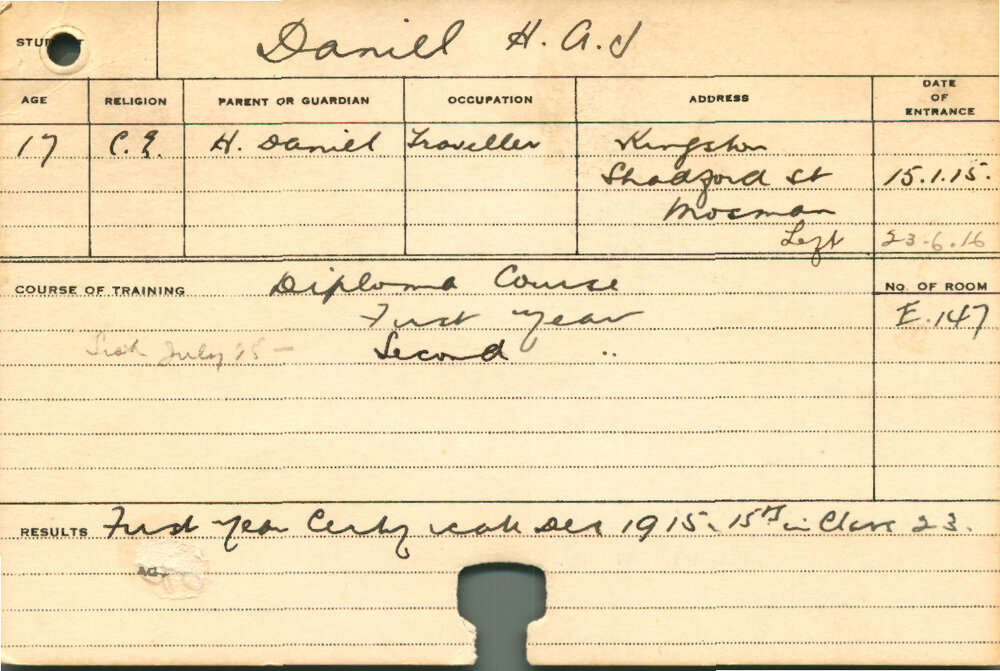 STUDENT Daniell H. A. J
AGE RELIGION PARENT OR GUARDIAN OCCUPATION ADDRESS DATE OF ENTRANCE
17 C.E. H. Daniell Traveller Kingston
Shadford St 15.1.15.
Mosman
Left 23.6.16
COURSE OF TRAINING Diploma Course No. OF ROOM
First Year E.147
July '15 — Second "
RESULTS First Year Certificate Dec 1915. 15th in Class 23.